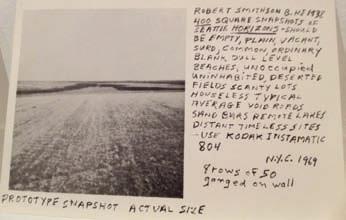 ROBERT SMITHSON B. NJ 1938
400 SQUARE SNAPSHOTS OF
SEATTLE HORIZONS - SHOULD
BE EMPTY, PLAIN, VACANT,
SURD, COMMON, ORDINARY
BLANK, DULL LEVEL
BEACHES, UNOCCUPIED
UNINHABITED, DESERTED
FIELDS SCANTY LOTS
HOUSELESS TYPICAL
AVERAGE VOID ROADS
SAND BARS REMOTE LAKES
DISTANT TIMELESS SITES
- USE KODAK INSTAMATIC
804
N.Y.C. 1969
8 rows of 50
ganged on wall
PROTOTYPE SNAPSHOT ACTUAL SIZE